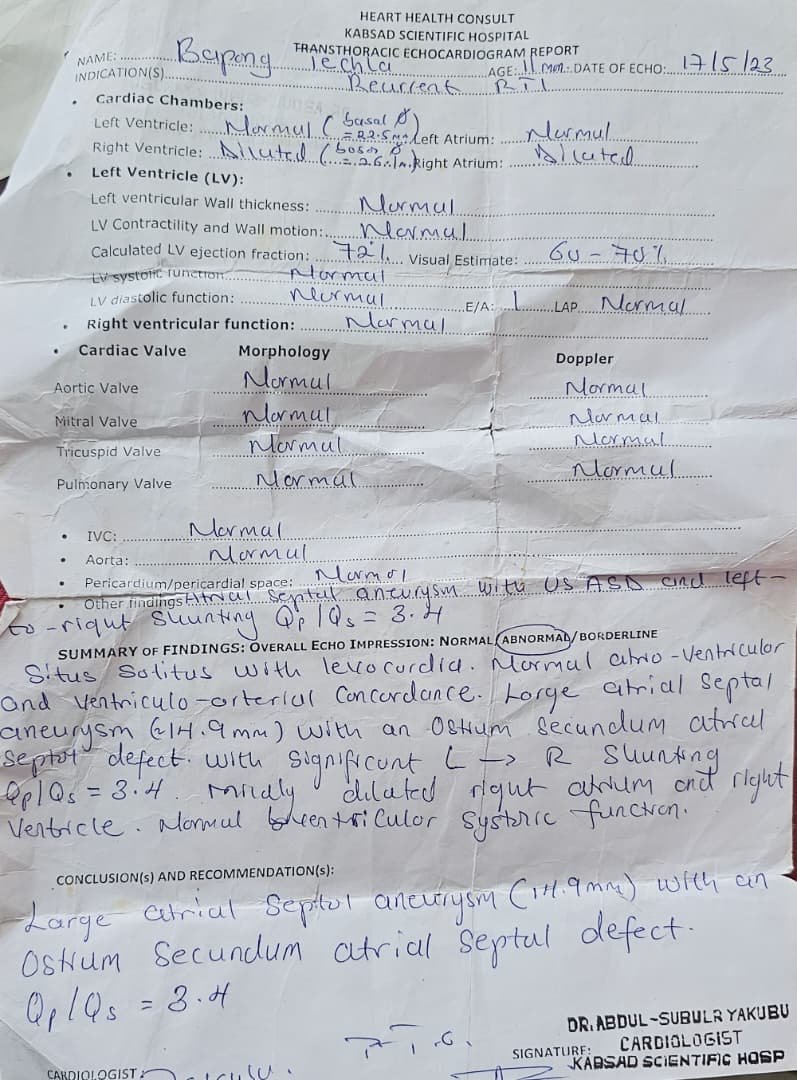 HEART HEALTH CONSULT
KABSAD SCIENTIFIC HOSPITAL
TRANSTHORACIC ECHOCARDIOGRAM REPORT
NAME: Bapong Techla AGE: 11 DATE OF ECHO: 17/5/23
INDICATION(S) Recurrent RTI
• Cardiac Chambers:
Left Ventricle: Normal (basal Ø = 22.5mm Left Atrium: Normal
Right Ventricle: Dilated (basal Ø = 26.1m Right Atrium: Dilated
• Left Ventricle (LV):
Left ventricular Wall thickness: Normal
LV Contractility and Wall motion: Normal
Calculated LV ejection fraction: 72% Visual Estimate: 60 - 70%
LV systolic function Normal
LV diastolic function: Normal E/A: 1 LAP Normal
• Right ventricular function: Normal
• Cardiac Valve Morphology Doppler
Aortic Valve Normal Normal
Mitral Valve Normal Normal
Tricuspid Valve Normal Normal
Pulmonary Valve Normal Normal
• IVC: Normal
• Aorta: Normal
• Pericardium/pericardial space: Normal
• Other findings Atrial septal aneurysm with OS ASD and left-
to-right shunting Qp/Qs = 3.4
SUMMARY OF FINDINGS: OVERALL ECHO IMPRESSION: NORMAL/ABNORMAL/BORDERLINE
Situs Solitus with levocardia. Normal atrio-ventricular
and ventriculo-arterial concordance. Large atrial septal
aneurysm (14.9mm) with an Ostium Secundum atrial
septal defect. with significant L → R Shunting
Qp/Qs = 3.4. mildly dilated right atrium and right
Ventricle. Normal biventricular systolic function.
CONCLUSION(s) AND RECOMMENDATION(s):
Large atrial septal aneurysm (14.9mm) with an
Ostium Secundum atrial septal defect.
Qp/Qs = 3.4
P.T.O.
DR. ABDUL-SUBULR YAKUBU
CARDIOLOGIST
SIGNATURE: KABSAD SCIENTIFIC HOSP
CARDIOLOGIST: